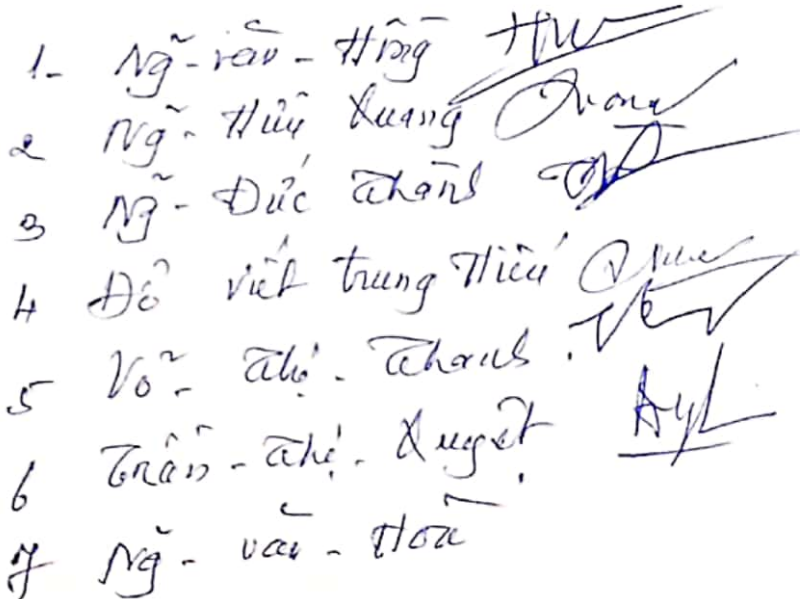 1- Ng̃ - văn - Hồng
2 Ng̃ - Hữu Quang
3 Ng̃ - Đức Thành
4 Đỗ viết trung Hiếu
5 Võ - Thị - Thanh
6 Trần - Thị - Quyết
7 Ng̃ - văn - Hoà